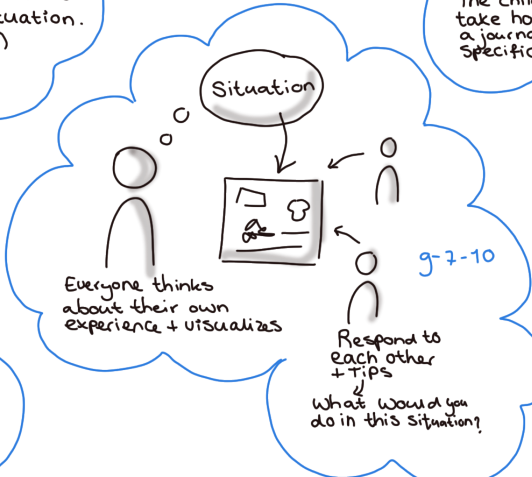 uation.
)
The chil
take ho
a journ
Specific
Situation
9-7-10
Everyone thinks
about their own
experience + visualizes
Respond to
each other
+ Tips
What would you
do in this situation?